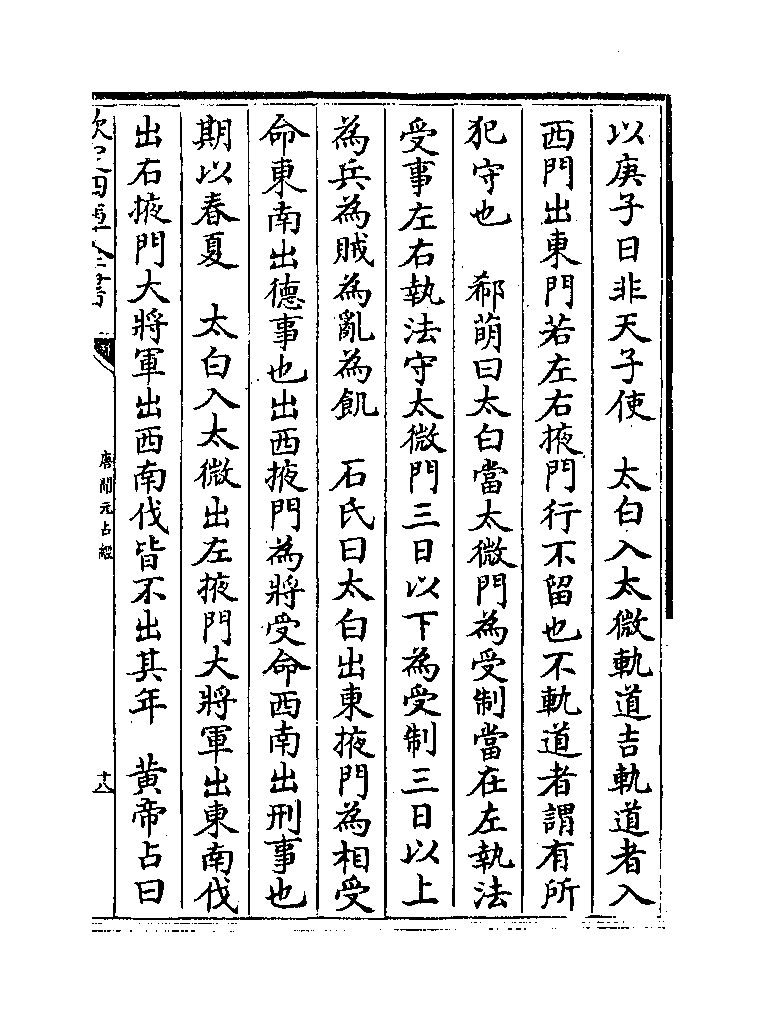 以庚子日非天子使　太白入太微軌道吉軌道者入
西門出東門若左右掖門行不留也不軌道者謂有所
犯守也　郗萌曰太白當太微門為受制當在左執法
受事左右執法守太微門三日以下為受制三日以上
為兵為賊為亂為飢　石氏曰太白出東掖門為相受
命東南出德事也出西掖門為將受命西南出刑事也
期以春夏　太白入太微出左掖門大將軍出東南伐
出右掖門大將軍出西南伐皆不出其年　黃帝占曰
欽定四庫全書
唐開元占經
十八